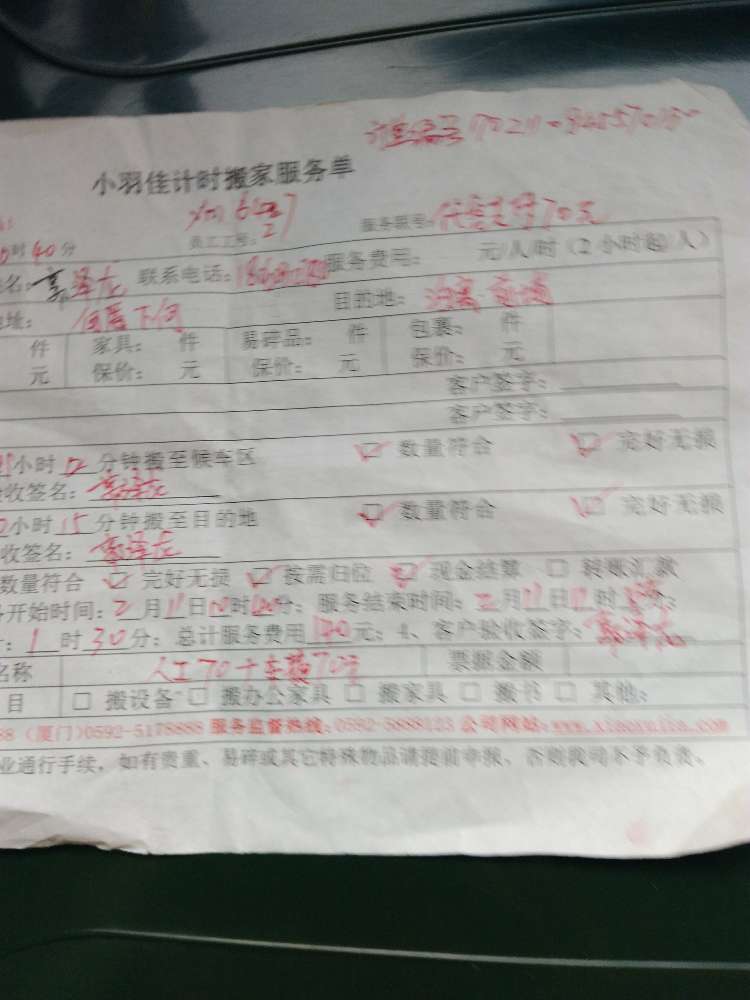 订单编号
小羽佳计时搬家服务单
时40分 员工工号: 服务跟号:代客支付70元
名: 郭泽龙 联系电话: 服务费用: 元/人/时（2小时起/人）
地址: 何厝下何 目的地:
件 家具: 件 易碎品: 件 包裹: 件
元 保价: 元 保价: 元 保价: 元
客户签字:
客户签字:
小时12分钟搬至候车区 数量符合 完好无损
收签名: 郭泽龙
小时15分钟搬至目的地 数量符合 完好无损
收签名: 郭泽龙
数量符合 完好无损 按需归位 现金结算 转账汇款
开始时间: 2月11日10时00分; 服务结束时间: 2月11日
: 1时30分; 总计服务费用140元; 4、客户验收签字: 郭泽龙
名称 人工70+车费70元 票据金额
目 搬设备 搬办公家具 搬家具 搬书 其他:
88 (厦门)0592-5178888 服务监督热线:0592-5888123 公司网站:www.xiaoyujia.com
业通行手续，如有贵重、易碎或其它特殊物品请提前申报，否则我司不予负责。